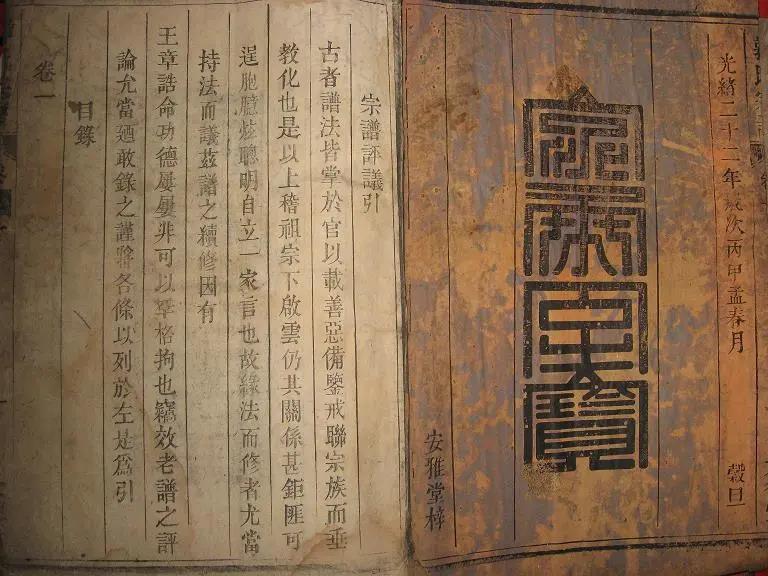 光緒二十二年歲次丙申孟春月 穀旦
寶
安雅堂梓
宗譜評議引
古者譜法皆掌於官以載善惡備鑒戒聯宗族而垂
教化也是以上稽祖宗下啟雲仍其關係甚鉅匪可
逞胞臆炫聰明自立一家言也故緣法而修者尤當
持法而議茲譜之續修因有
王章誥命功德屢屢非可以格拘也竊效老譜之評
論允當廼敢錄之謹將各條以列於左是爲引
目錄
卷一